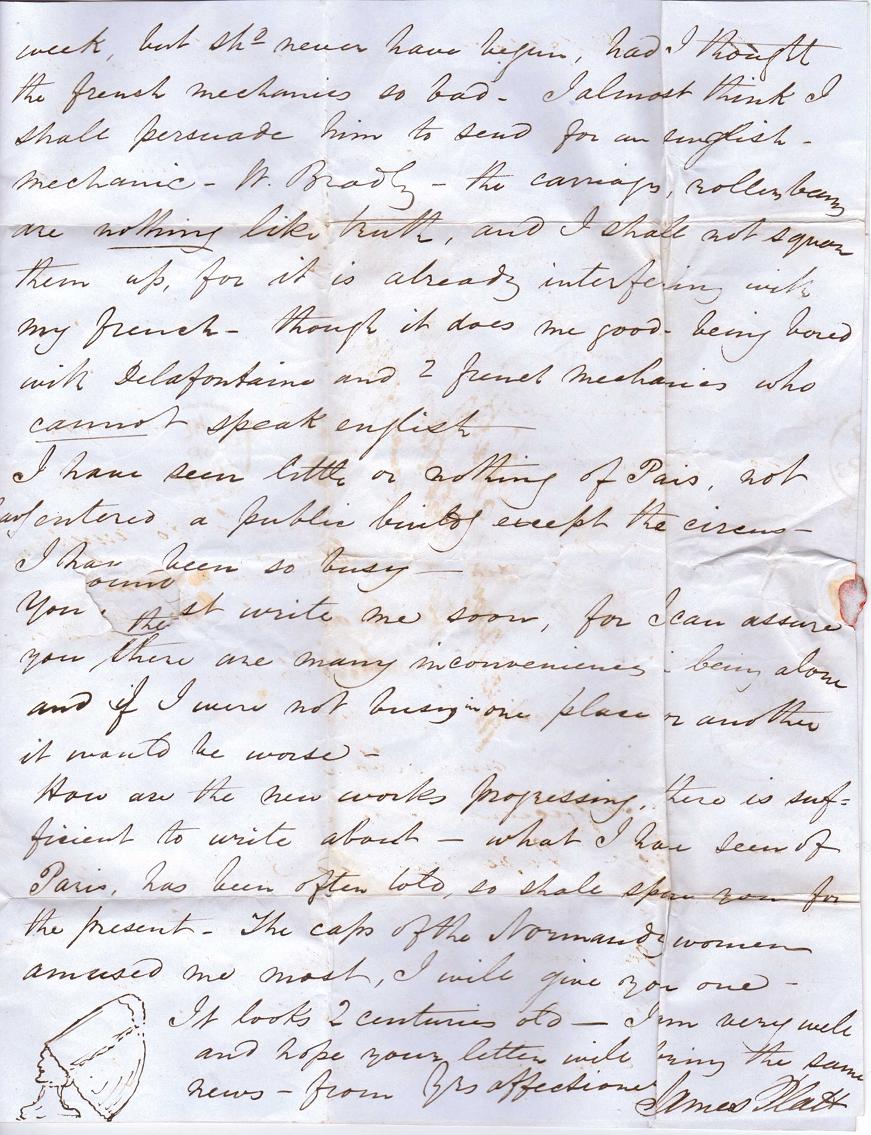 week, but shd never have begun, had I thought
the french mechanics so bad - I almost think I
shall persuade him to send for an english -
mechanic - W. Bradly - the carriage, roller beams
are nothing like truth, and I shall not square
them up, for it is already interfering with
my french - though it does me good being bored
with Delafontaine and 2 french mechanics who
cannot speak english —
I have seen little or nothing of Paris, not
entered a public buildg except the circus -
I have been so busy —
You st write me soon, for I can assure
you there are many inconveniences being alone
and if I were not busy in one place or another
it would be worse -
How are the new works progressing, there is suf=
ficient to write about - what I have seen of
Paris, has been often told, so shall spare you for
the present - The caps of the Normandy women
amused me most, I will give you one -
It looks 2 centuries old — I am very well
and hope your letter will bring the same
news - from Yrs affectionate
James Platt